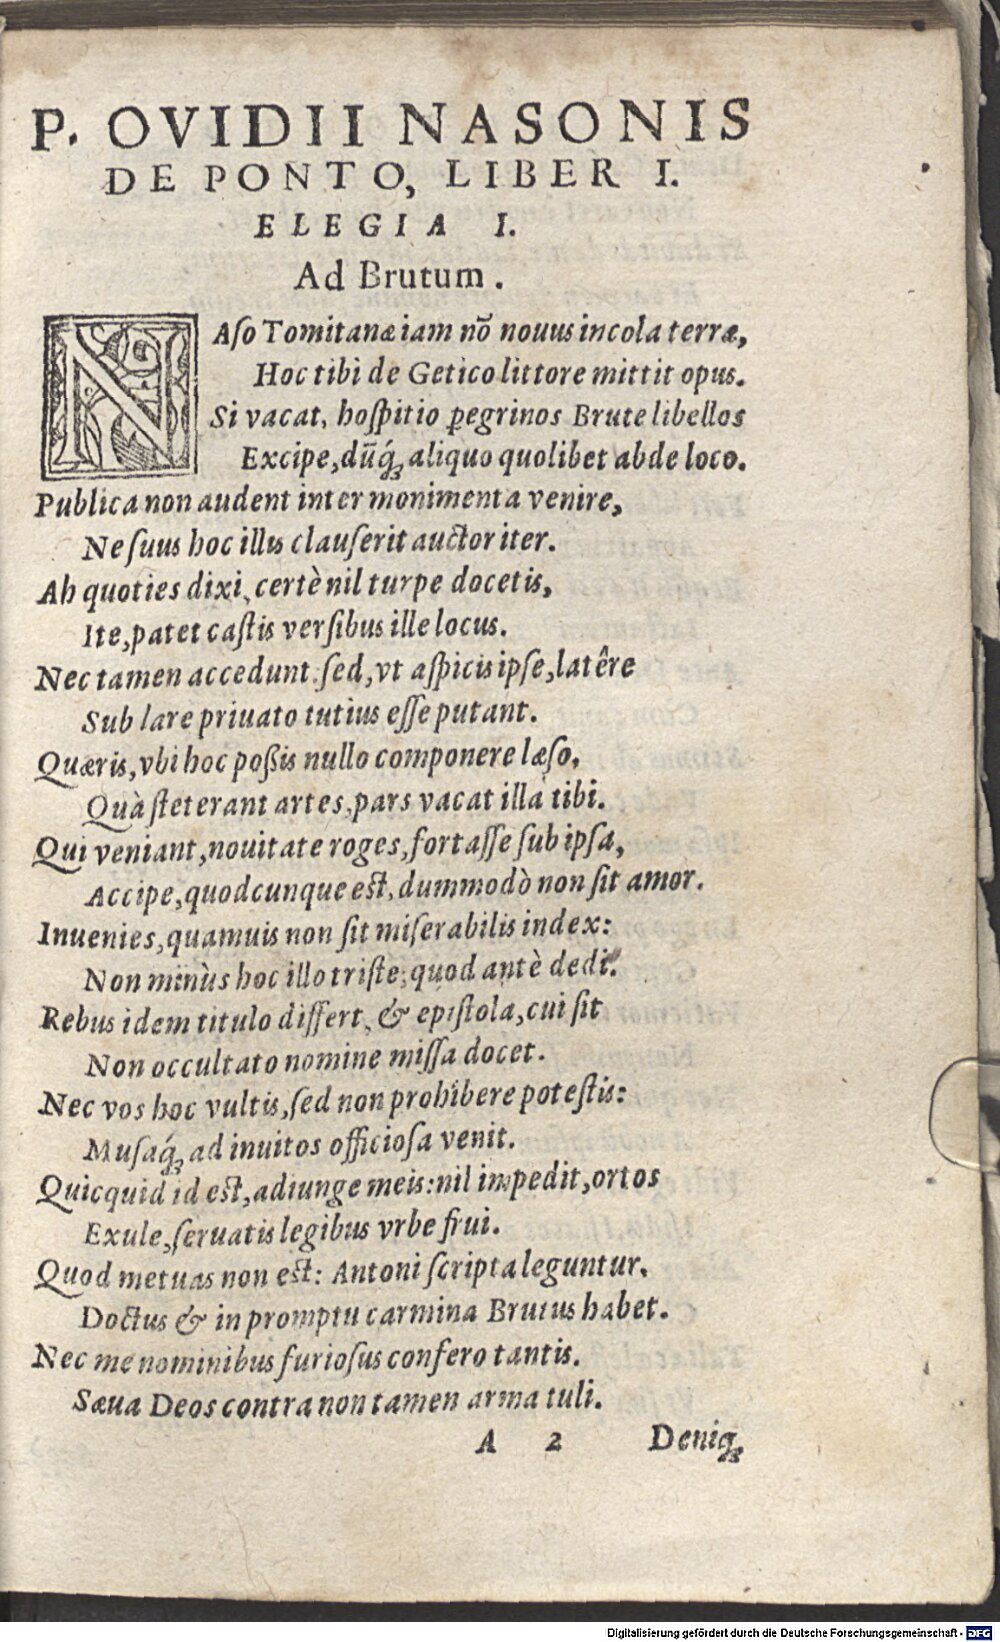 P. OVIDII NASONIS
DE PONTO, LIBER I.
ELEGIA I.
Ad Brutum.
NAſo Tomitanæ iam nõ nouus incola terræ,
Hoc tibi de Getico littore mittit opus.
Si vacat, hoſpitio ꝑegrinos Brute libellos
Excipe, dũq́ꝫ aliquo quolibet abde loco.
Publica non audent inter monimenta venire,
Ne ſuus hoc illis clauſerit auctor iter.
Ah quoties dixi, certè nil turpe docetis,
Ite, patet caſtis verſibus ille locus.
Nec tamen accedunt: ſed, vt aſpicis ipſe, latêre
Sub lare priuato tutius eſſe putant.
Quæris, vbi hoc poßis nullo componere læſo,
Quà ſteterant artes, pars vacat illa tibi.
Qui veniant, nouitate roges, fortaſſe ſub ipſa,
Accipe, quodcunque eſt, dummodò non ſit amor.
Inuenies, quamuis non ſit miſerabilis index:
Non minùs hoc illo triſte, quod antè dedi.
Rebus idem titulo differt, & epiſtola, cui ſit
Non occultato nomine miſſa docet.
Nec vos hoc vultis, ſed non prohibere poteſtis:
Muſaq́ꝫ ad inuitos officioſa venit.
Quicquid id eſt, adiunge meis: nil impedit, ortos
Exule, ſeruatis legibus vrbe frui.
Quod metuas non eſt: Antoni ſcripta leguntur,
Doctus & in promptu carmina Brutus habet.
Nec me nominibus furioſus confero tantis.
Sæua Deos contra non tamen arma tuli.
A 2 Deniqꝫ
Digitalisierung gefördert durch die Deutsche Forschungsgemeinschaft - DFG